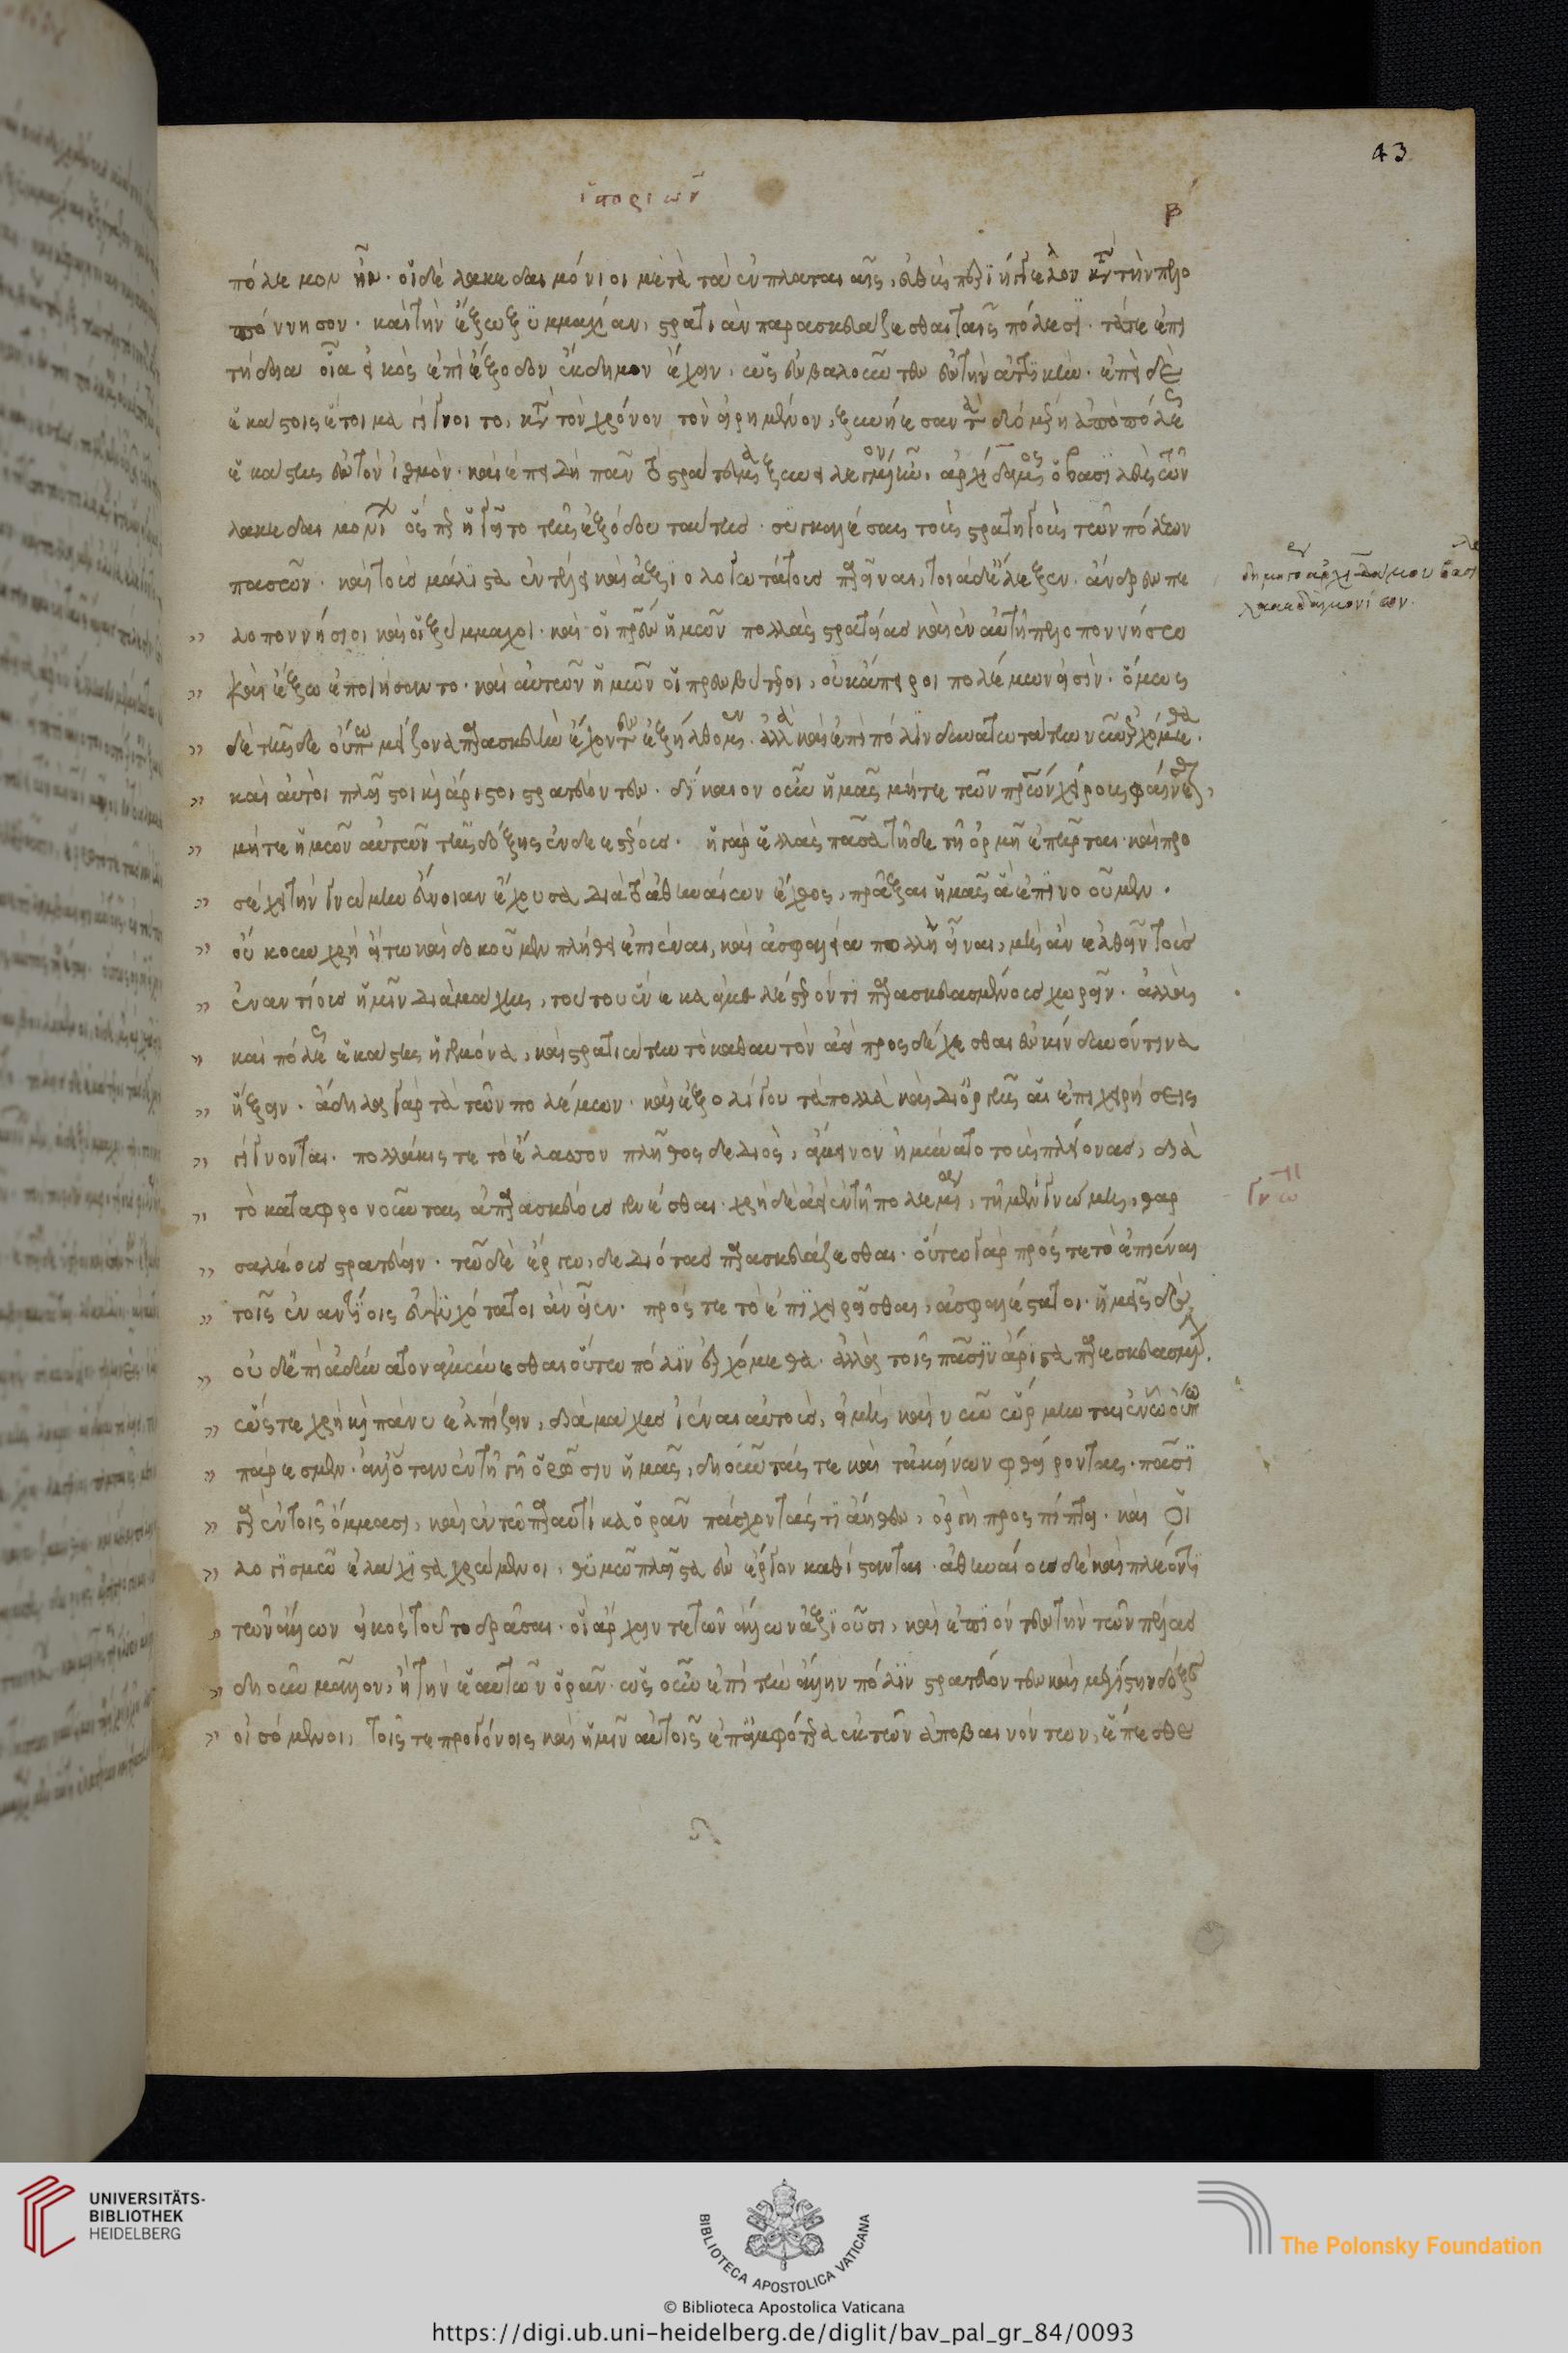 ἱστοριῶν
β
43
πόλεμον ἦν. οἱ δὲ λακεδαιμόνιοι μετὰ τὰ ἐν πλαταιαῖς, εὐθὺς περιήγγελλον κατὰ τὴν πελο
πόννησον. καὶ τὴν ἔξω ξυμμαχίαν, στρατιὰν παρασκευάζεσθαι ταῖς πόλεσι. τά τε ἐπι
τήδεια οἷα εἰκὸς ἐπὶ ἔξοδον ἔκδημον ἔχειν, ὡς ἐσβαλοῦντες ἐς τὴν ἀττικήν. ἐπεὶ δὲ
ἑκάστοις ἕτοιμα γίγνοιτο, κατὰ τὸν χρόνον τὸν εἰρημένον, ξυνήεσαν τὰ δύο μέρη ἀπὸ πόλεως
ἑκάστης ἐς τὸν ἰσθμόν. καὶ ἐπειδὴ πᾶν τὸ στράτευμα ξυνειλεγμένον ἦν, ἀρχίδαμος ὁ βασιλεὺς τῶν
λακεδαιμονίων ὅσπερ ἡγεῖτο τῆς ἐξόδου ταύτης. συγκαλέσας τοὺς στρατηγοὺς τῶν πόλεων
πασῶν. καὶ τοὺς μάλιστα ἐν τέλει καὶ ἀξιολογωτάτους παρεῖναι, τοιάδ' ἔλεξεν. ἄνδρες πε
λοποννήσιοι καὶ οἱ ξύμμαχοι. καὶ οἱ πατέρες ἡμῶν πολλὰς στρατείας καὶ ἐν αὐτῇ πελοποννήσῳ
καὶ ἔξω ἐποιήσαντο. καὶ αὐτῶν ἡμῶν οἱ πρεσβύτεροι, οὐκ ἄπειροι πολέμων εἰσίν. ὅμως
δὲ τῆς δε οὔπω μείζονα παρασκευὴν ἔχοντες ἐξήλθομεν. ἀλλὰ καὶ ἐπὶ πόλιν δυνατωτάτην νῦν ἐρχόμεθα.
καὶ αὐτοὶ πλεῖστοι καὶ ἄριστοι στρατεύοντες. δίκαιον οὖν ἡμᾶς μήτε τῶν πατέρων χείρους φαίνεσθαι,
μήτε ἡμῶν αὐτῶν τῆς δόξης ἐνδεεστέρους. ἡ γὰρ ἑλλὰς πᾶσα τῇδε τῇ ὁρμῇ ἐπῆρται. καὶ προ
σέχει τὴν γνώμην εὔνοιαν ἔχουσα διὰ τὸ ἀθηναίων ἔχθος, πρᾶξαι ἡμᾶς ἃ ἐπινοοῦμεν.
οὔκουν χρὴ εἴ τῳ καὶ δοκοῦμεν πλήθει ἐπιέναι, καὶ ἀσφάλεια πολλὴ εἶναι, μὴ ἂν ἐλθεῖν τοὺς
ἐναντίους ἡμῖν διὰ μάχης, τούτου ἕνεκα ἀμελέστερόν τι παρασκευασμένους χωρεῖν. ἀλλὰ
καὶ πόλεως ἑκάστης ἡγεμόνα, καὶ στρατιώτην τὸ καθ' αὑτὸν ἀεὶ προσδέχεσθαι ἐς κίνδυνόν τινα
ἥξειν. ἄδηλα γὰρ τὰ τῶν πολέμων. καὶ ἐξ ὀλίγου τὰ πολλὰ καὶ δι' ὀργῆς αἱ ἐπιχειρήσεις
γίγνονται. πολλάκις τε τὸ ἔλασσον πλῆθος δεδιὸς, ἄμεινον ἠμύνατο τοὺς πλέονας, διὰ
τὸ καταφρονοῦντας ἀπαρασκεύους γενέσθαι. χρὴ δὲ ἀεὶ ἐν τῇ πολεμίᾳ, τῇ μὲν γνώμῃ, θαρ
σαλέους στρατεύειν. τῷ δὲ ἔργῳ, δεδιότας παρασκευάζεσθαι. οὕτω γὰρ πρός τε τὸ ἐπιέναι
τοῖς ἐναντίοις εὐψυχότατοι ἂν εἶεν. πρός τε τὸ ἐπιχειρεῖσθαι, ἀσφαλέστατοι. ἡμεῖς δὲ
οὐδ' ἐπὶ ἀδύνατον ἀμύνεσθαι οὕτω πόλιν ἐρχόμεθα. ἀλλὰ τοῖς πᾶσιν ἄριστα παρεσκευασμένην.
ὥστε χρὴ καὶ πάνυ ἐλπίζειν, διὰ μάχης ἰέναι αὐτοὺς, εἰ μὴ καὶ νῦν ὥρμηνται ἐν ᾧ οὔπω
πάρεσμεν. ἀλλ' ὅταν ἐν τῇ γῇ ὁρῶσιν ἡμᾶς, δῃοῦντάς τε καὶ τἀκείνων φθείροντας. πᾶσι
γὰρ ἐν τοῖς ὄμμασι, καὶ ἐν τῷ παραυτίκα ὁρᾶν πάσχοντάς τι ἄηθες, ὀργὴ προσπίπτει. καὶ οἱ
λογισμῷ ἐλάχιστα χρώμενοι, θυμῷ πλεῖστα ἐς ἔργον καθίστανται. ἀθηναίους δὲ καὶ πλέον τι
τῶν ἄλλων εἰκὸς τοῦτο δρᾶσαι. οἳ ἄρχειν τε τῶν ἄλλων ἀξιοῦσι, καὶ ἐπιόντες τὴν τῶν πέλας
δῃοῦν μᾶλλον, ἢ τὴν ἑαυτῶν ὁρᾶν. ὡς οὖν ἐπὶ τὴν ἄλλην πόλιν στρατεύοντες καὶ μεγίστην δόξαν
οἰσόμενοι, τοῖς τε προγόνοις καὶ ἡμῖν αὐτοῖς ἐπ' ἀμφότερα ἐκ τῶν ἀποβαινόντων, ἕπεσθε
δημηγορία ἀρχιδάμου βασιλέως
λακεδαιμονίων
γνώμη
UNIVERSITÄTS-
BIBLIOTHEK
HEIDELBERG
BIBLIOTECA APOSTOLICA VATICANA
The Polonsky Foundation
© Biblioteca Apostolica Vaticana
https://digi.ub.uni-heidelberg.de/diglit/bav_pal_gr_84/0093